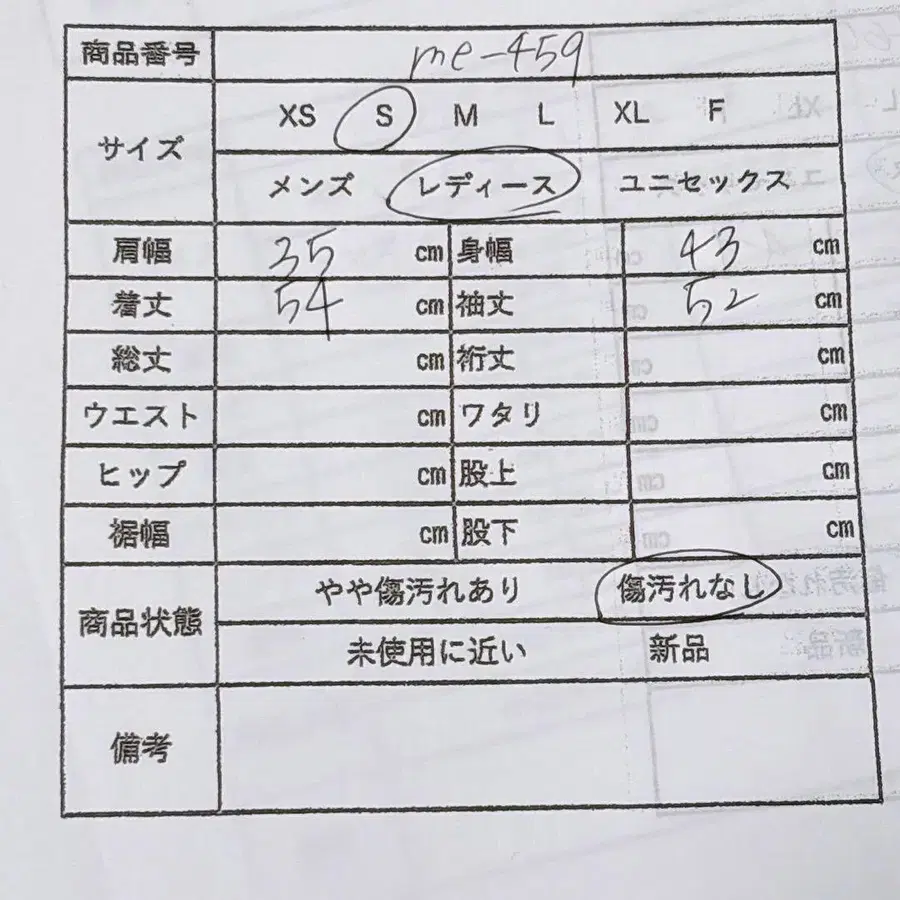 商品番号 me-459
サイズ XS S M L XL F
メンズ レディース ユニセックス
肩幅 35 cm 身幅 43 cm
着丈 54 cm 袖丈 52 cm
総丈 cm 裄丈 cm
ウエスト cm ワタリ cm
ヒップ cm 股上 cm
裾幅 cm 股下 cm
商品状態 やや傷汚れあり 傷汚れなし
未使用に近い 新品
備考